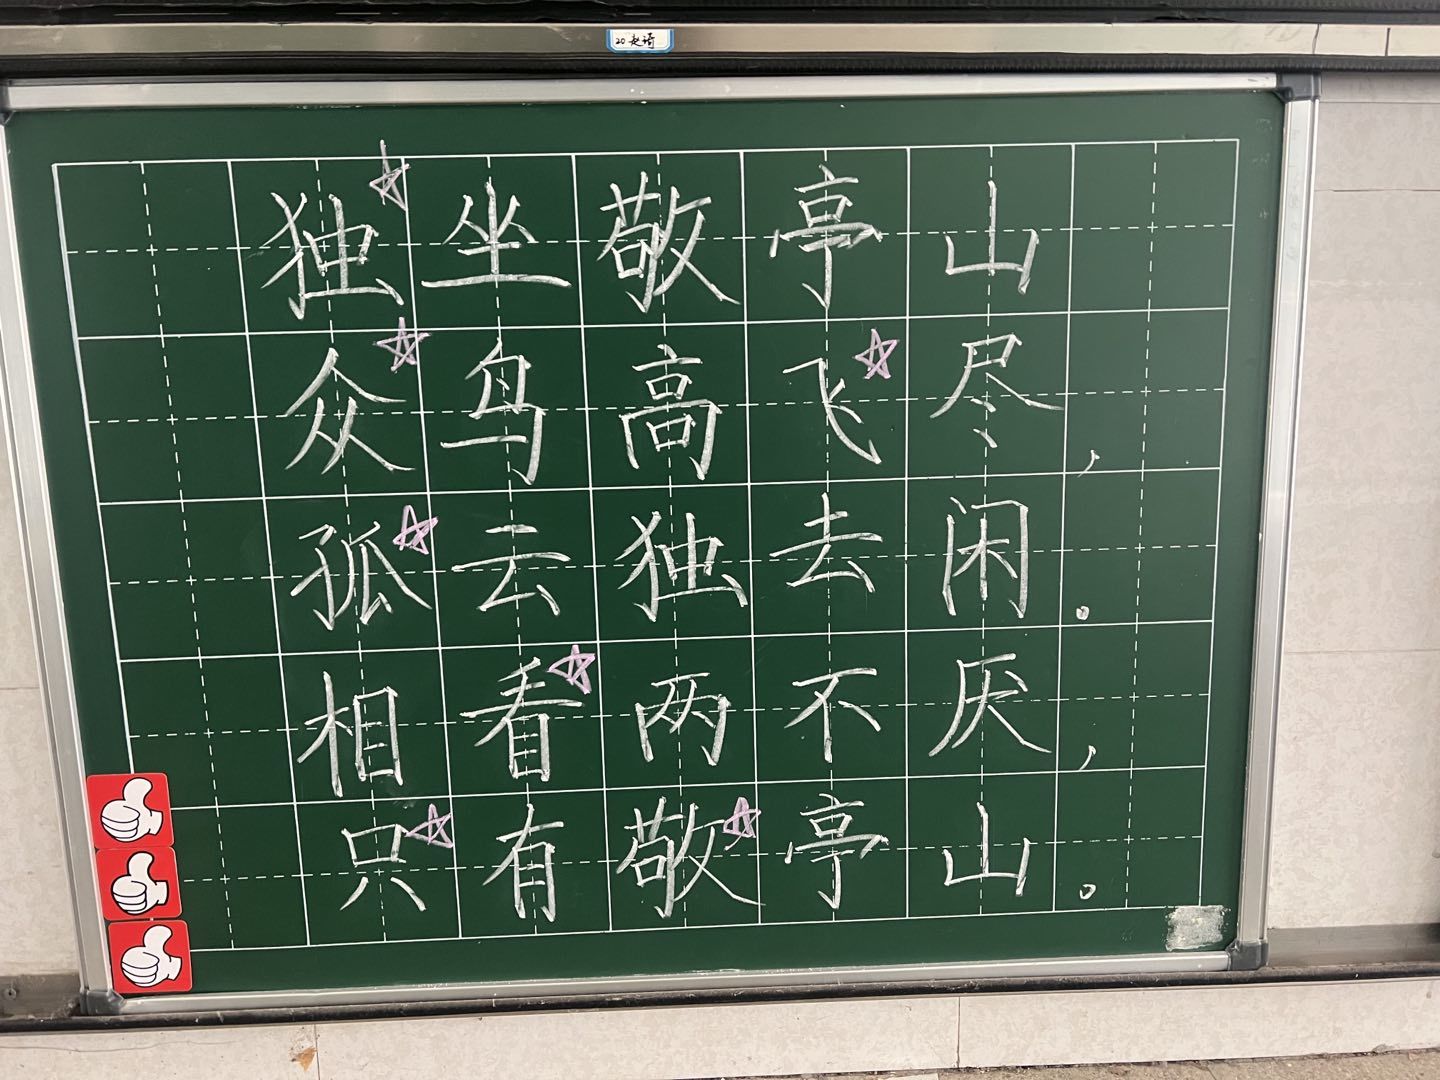 20 赵琦
独坐敬亭山
众鸟高飞尽，
孤云独去闲。
相看两不厌，
只有敬亭山。